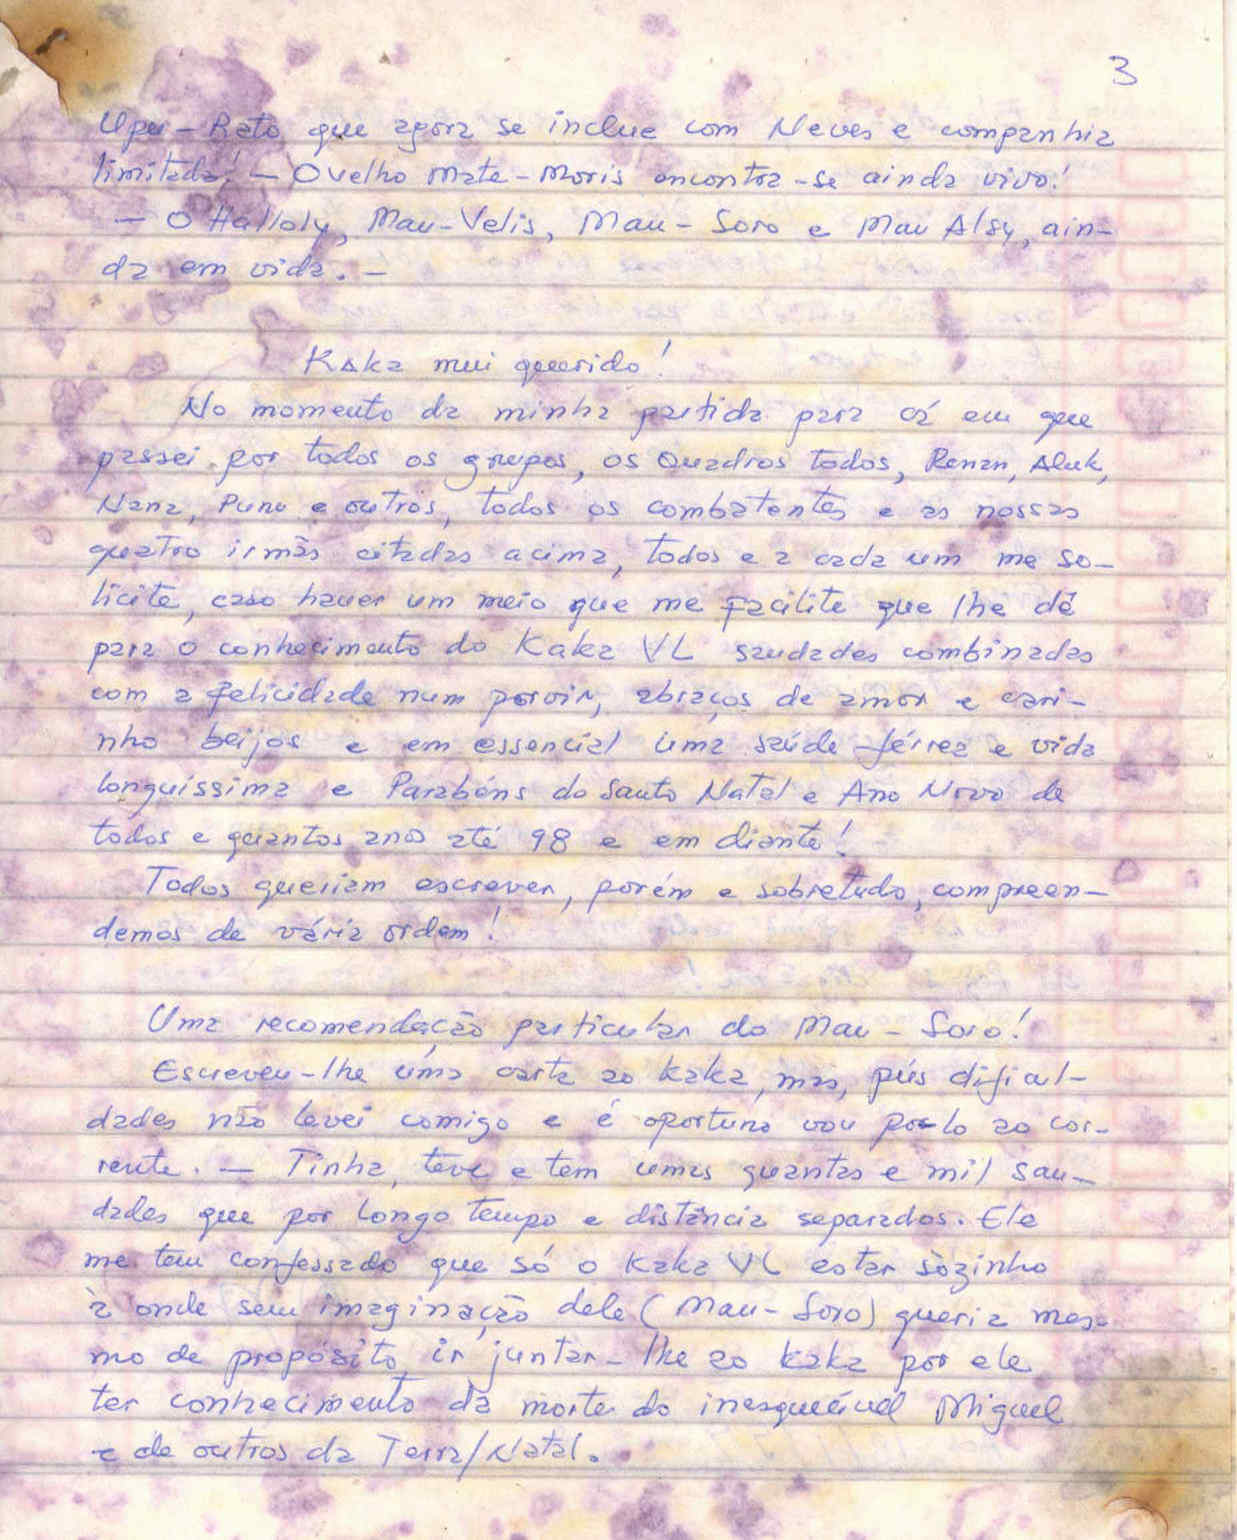 3
Upu-Rato que agora se inclue com Neves e companhia
limitada! — O velho Mate-Moris encontra-se ainda vivo!
— O Halloly, Mau-Velis, Mau-Soro e Mau Alsy, ain-
da em vida. —
Kaka mui querido!
No momento da minha partida para cá em que
passei por todos os grupos, os Quadros todos, Renan, Aluk,
Nana, Puno e outros, todos os combatentes e as nossas
quatro irmãs citadas acima, todos e a cada um me so-
licita, caso haver um meio que me facilite que lhe dê
para o conhecimento do Kaka VL saudades combinadas
com a felicidade num porvir, abraços de amor e cari-
nho beijos e em essencial uma saúde férrea e vida
longuíssima e Parabéns do Santo Natal e Ano Novo de
todos e quantos anos até 98 e em diante!
Todos queriam escrever, porém e sobretudo, compreen-
demos de vária ordem!
Uma recomendação particular do Mau-Soro!
Escreveu-lhe uma carta ao Kaka, mas, pús dificul-
dades não levei comigo e é oportuno vou po-lo ao cor-
rente. — Tinha, teve e tem umas quantas e mil sau-
dades que por longo tempo e distância separados. Ele
me tem confessado que só o Kaka VL estar sòzinho
à onde sem imaginação dele (Mau-Soro) queria mes-
mo de propósito ir juntar-lhe ao Kaka por ele
ter conhecimento da morte do inesquecível Miguel
e de outros da Terra/Natal.